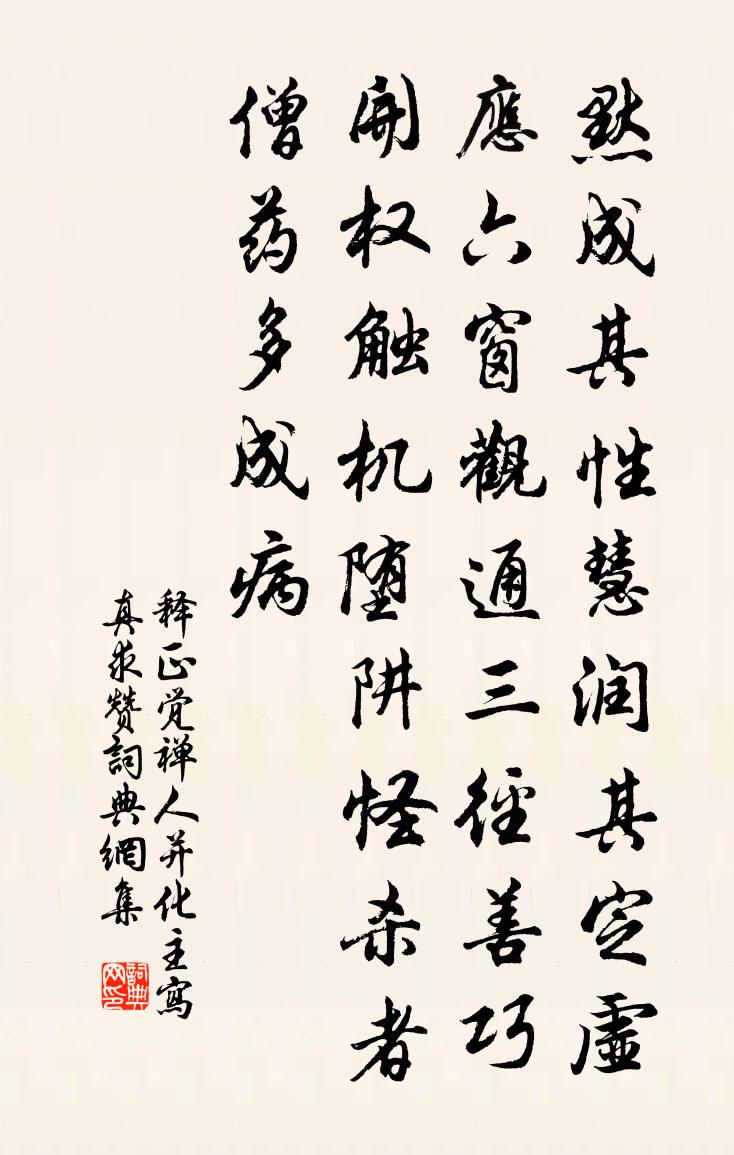 黙成其性慧润其定虚
應六窗觀通三径善巧
開权触机堕阱怪杀者
僧药多成病
释正觉禅人并化主寫
真求赞詞典網集
詞典网印